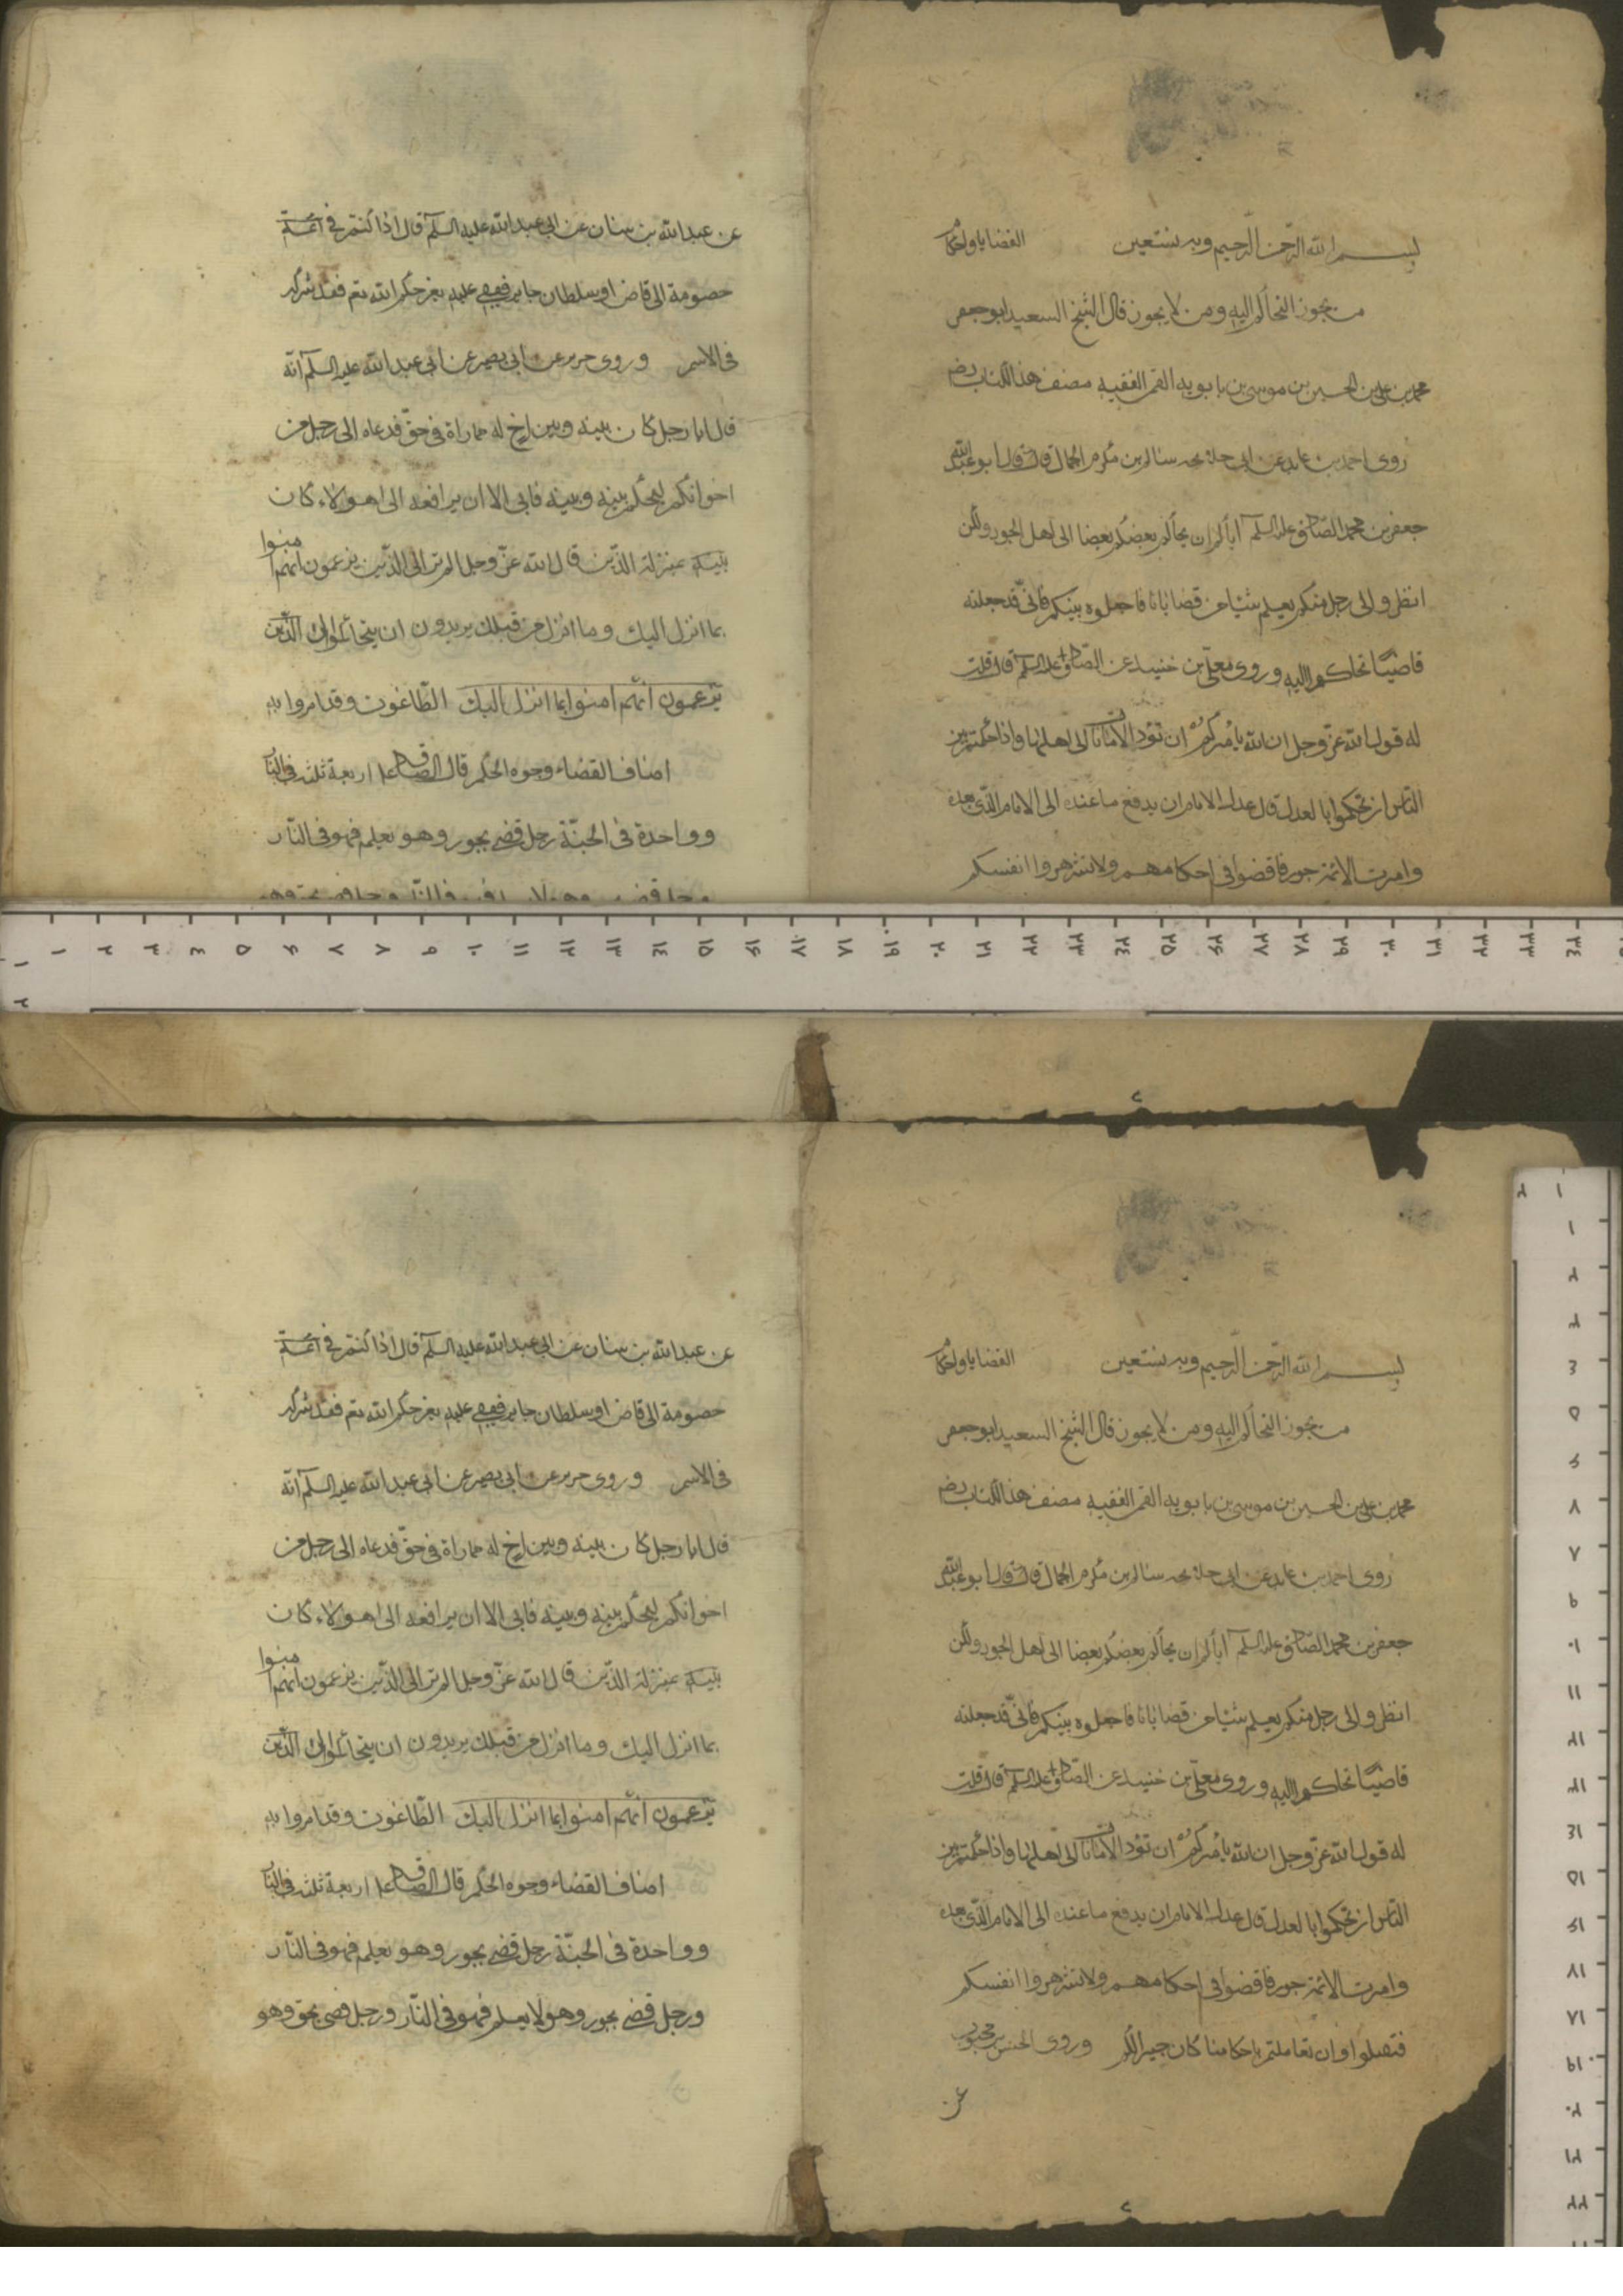 بسم الله الرحمن الرحيم وبه نستعين القضايا والاحكام
من يجوز التحاكم اليه ومن لا يجوز قال الشيخ السعيد ابو جعفر
محمد بن علي بن الحسين بن موسى بن بابويه القمي الفقيه مصنف هذا الكتاب رضه
روى احمد بن عايد عن ابي خديجه سالم بن مكرم الجمال قال قال ابو عبد الله
جعفر بن محمد الصادق عليه السلم اياكم ان يحاكم بعضكم بعضا الى اهل الجور ولكن
انظروا الى رجل منكم يعلم شيئا من قضايانا فاجعلوه بينكم فاني قد جعلته
قاضيا فتحاكموا اليه وروى معلى بن خنيس عن الصادق عليه السلم قال قلت
له قول الله عز وجل ان الله يأمركم ان تؤدوا الامانات الى اهلها واذا حكمتم بين
الناس ان تحكموا بالعدل قال عدل الامام ان يدفع ما عنده الى الامام الذي بعده
وامرت الائمة جور فاقضوا في احكامهم ولا تشهروا انفسكم
عن عبد الله بن سنان عن ابي عبد الله عليه السلم قال اذا كنتم في
خصومة الى قاض او سلطان جاير فقضى عليه بغير حكم الله تع فقد شركه
في الاسم وروى حريز عن ابي بصير عن ابي عبد الله عليه السلم انه
قال ايما رجل كان بينه وبين اخ له مماراة في حق فدعاه الى رجل من
اخوانكم ليحكم بينه وبينه فابى الا ان يرافعه الى هولاء كان
بمنزلة الذين قال الله عز وجل الم تر الى الذين يزعمون انهم امنوا
بما انزل اليك وما انزل من قبلك يريدون ان يتحاكموا الى الذين
يزعمون انهم امنوا بما انزل اليك الطاغوت وقد امروا به
اصناف القضاء وجوه الحكم قال الصادق ع اربعة ثلثة في النار
وواحدة في الجنة رجل قضى بجور وهو يعلم فهو في النار
٢
بسم الله الرحمن الرحيم وبه نستعين القضايا والاحكام
من يجوز التحاكم اليه ومن لا يجوز قال الشيخ السعيد ابو جعفر
محمد بن علي بن الحسين بن موسى بن بابويه القمي الفقيه مصنف هذا الكتاب رضه
روى احمد بن عايد عن ابي خديجه سالم بن مكرم الجمال قال قال ابو عبد الله
جعفر بن محمد الصادق عليه السلم اياكم ان يحاكم بعضكم بعضا الى اهل الجور ولكن
انظروا الى رجل منكم يعلم شيئا من قضايانا فاجعلوه بينكم فاني قد جعلته
قاضيا فتحاكموا اليه وروى معلى بن خنيس عن الصادق عليه السلم قال قلت
له قول الله عز وجل ان الله يأمركم ان تؤدوا الامانات الى اهلها واذا حكمتم بين
الناس ان تحكموا بالعدل قال عدل الامام ان يدفع ما عنده الى الامام الذي بعده
وامرت الائمة جور فاقضوا في احكامهم ولا تشهروا انفسكم
فتقتلوا وان تعاملتم باحكامنا كان خيرا لكم وروى الحسن بن محبوب
عن
عن عبد الله بن سنان عن ابي عبد الله عليه السلم قال اذا كنتم في
خصومة الى قاض او سلطان جاير فقضى عليه بغير حكم الله تع فقد شركه
في الاسم وروى حريز عن ابي بصير عن ابي عبد الله عليه السلم انه
قال ايما رجل كان بينه وبين اخ له مماراة في حق فدعاه الى رجل من
اخوانكم ليحكم بينه وبينه فابى الا ان يرافعه الى هولاء كان
بمنزلة الذين قال الله عز وجل الم تر الى الذين يزعمون انهم امنوا
بما انزل اليك وما انزل من قبلك يريدون ان يتحاكموا الى الذين
يزعمون انهم امنوا بما انزل اليك الطاغوت وقد امروا به
اصناف القضاء وجوه الحكم قال الصادق ع اربعة ثلثة في النار
وواحدة في الجنة رجل قضى بجور وهو يعلم فهو في النار
ورجل قضى بجور وهو لا يعلم فهو في النار ورجل قضى بحق وهو
٢